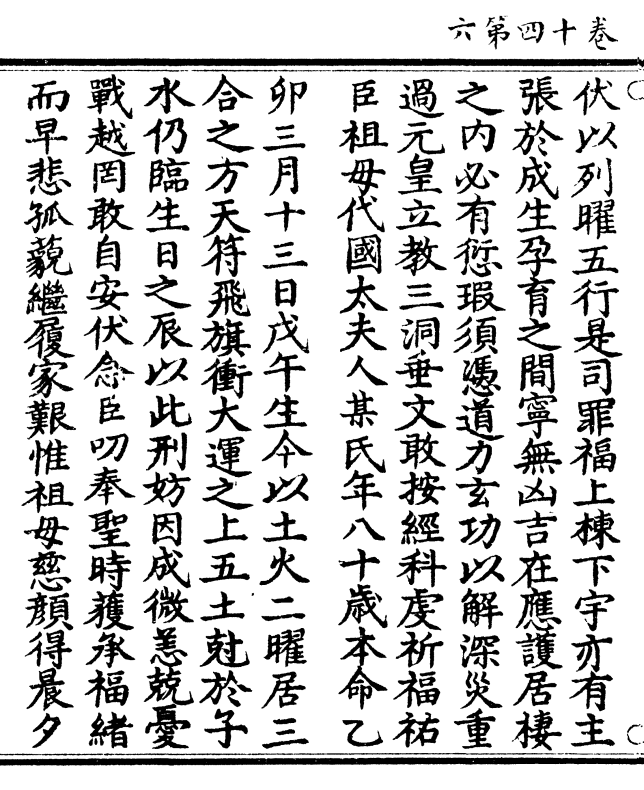 卷十四第六
伏以列曜五行是司罪福上棟下宇亦有主
張於成生孕育之間寧無凶吉在應護居棲
之内必有愆瑕須憑道力玄功以解深災重
過元皇立教三洞垂文敢按經科虔祈福祐
臣祖母代國太夫人某氏年八十歲本命乙
卯三月十三日戊午生今以土火二曜居三
合之方天符飛旗衝大運之上五土尅於子
水仍臨生日之辰以此刑妨因成微恙兢憂
戰越罔敢自安伏念臣叨奉聖時獲承福緒
而早悲孤藐繼履家艱惟祖母慈顔得晨夕